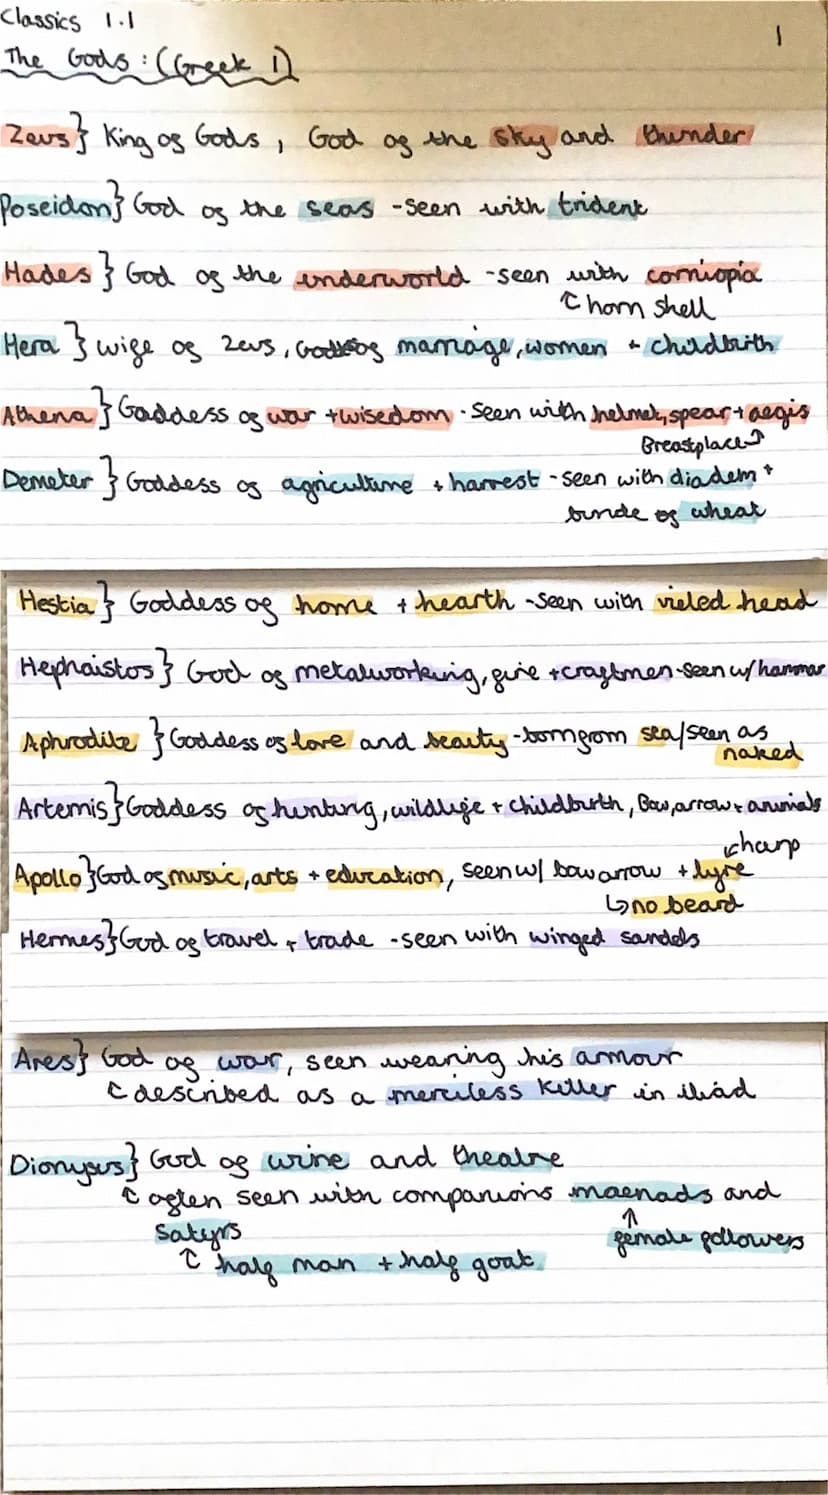 Classics 1.1
1
The Gods: (Greek 1)
Zeus} King of Gods, God of the sky and thunder
Poseidon} God of the seas - seen with trident
Hades} God of the underworld - seen with corniopia
↑ horn shell
Hera} wife of Zeus, Goddess of marriage, women + childbirth
Athena} Goddess of war + wisedom - Seen with helmet, spear + aegis
Breastplace↗
Demeter} Goddess of agriculture + harvest - seen with diadem +
bunde of wheat
Hestia} Goddess of home + hearth - seen with vieled head
Hephaistos} God of metalworking, fire + craftmen - seen w/ hammar
Aphrodite} Goddess of love and beauty - born from sea/seen as
naked
Artemis} Goddess of hunting, wildlife + childbirth, Bow, arrow + animals
↙ harp
Apollo} God of music, arts + education, seen w/ bow arrow + lyre
↳ no beard
Hermes} God of travel + trade - seen with winged sandels
Ares} God of war, seen wearing his armour
↑ described as a merciless killer in iliad
Dionysus} God of wine and theatre
↑ often seen with companions maenads and
satyrs ↑ female followers
↑ half man + half goat